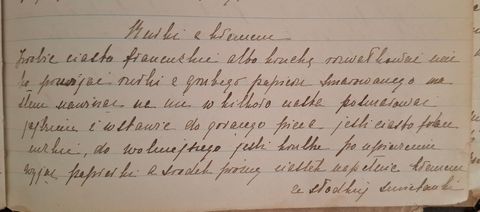 Rurki z kremem
Zrobić ciasto francuskie albo kruche rozwałkować
rurki z grubego papieru smarowanego ma
słem nawinąć na nie w kilkoro ciasta posmarować
jajkiem i wstawić do gorącego pieca jeśli ciasto fran
cuskie, do wolniejszego jeśli kruche po upieczeniu
wyjąć papierki a środek próżny ciastek napełnić kremem
ze słodkiej śmietanki